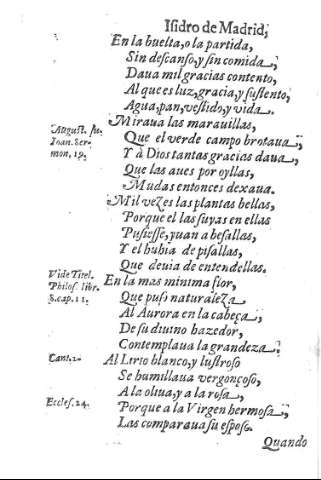 Isidro de Madrid,
En la buelta, o la partida,
Sin descanso, y sin comida,
Daua mil gracias contento,
Al que es luz, gracia, y sustento,
Agua, pan, vestido, y vida.
Miraua las marauillas,
August. in
Ioan. Ser-
mon, 19.
Que el verde campo brotaua,
Y à Dios tantas gracias daua,
Que las aues por oyllas,
Mudas entonces dexaua.
Mil vezes las plantas bellas,
Porque el las suyas en ellas
Pusiesse, yuan a besallas,
Y el huhia de pisallas,
Que deuia de entendellas.
Vide Titel.
Philos. libr.
8. cap. 11.
En la mas minima flor,
Que puso naturaleza
Al Aurora en la cabeça,
De su diuino hazedor,
Contemplaua la grandeza:
Cant. 2.
Al Lirio blanco, y lustroso
Se humillaua vergonçoso,
A la oliua, y a la rosa,
Eccles. 24.
Porque a la Virgen hermosa,
Las comparaua su esposo.
Quando